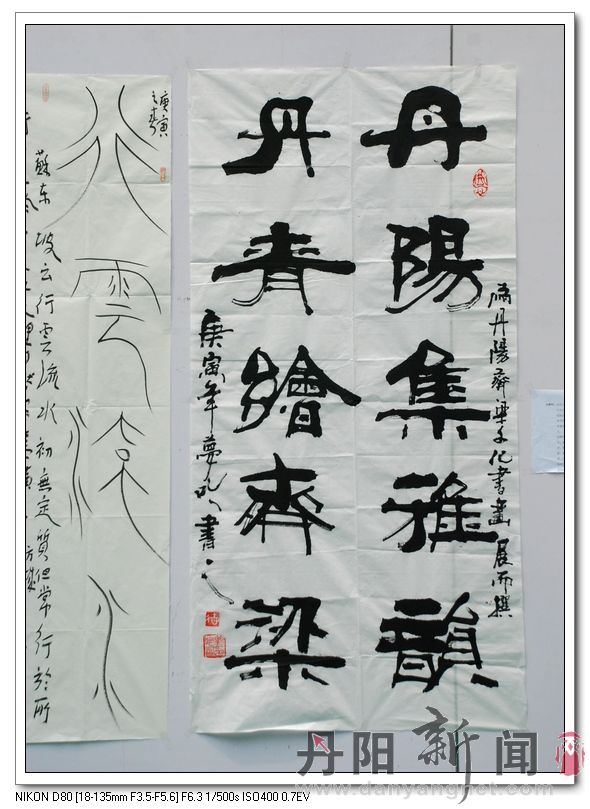 為丹陽齊梁文化書畫展而撰
丹陽集雅韻
丹青繪齊梁
庚寅年夢書之
庚寅
之春
行雲流水
蘇东坡云行雲流水初無定質但常行於所
丹阳新闻
NIKON D80 [18-135mm F3.5-F5.6] F6.3 1/500s ISO400 0.7EV